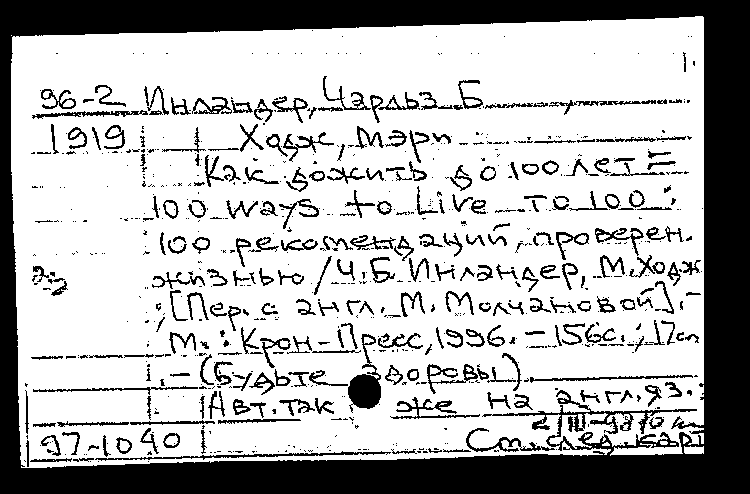 1.
96-2 Инландер, Чарльз Б
1919 Ходж, Мэри
Как дожить до 100 лет =
100 ways to Live To 100 :
100 рекомендаций, проверен.
жизнью / Ч.Б Инландер, М. Ходж
; [Пер. с англ. М. Молчановой]. -
М. : Крон-Пресс, 1996. - 156с. ; 17см
. - (Будьте здоровы).
Авт. так же на англ. яз. :
2/III-98
97-1040 См. след. карт